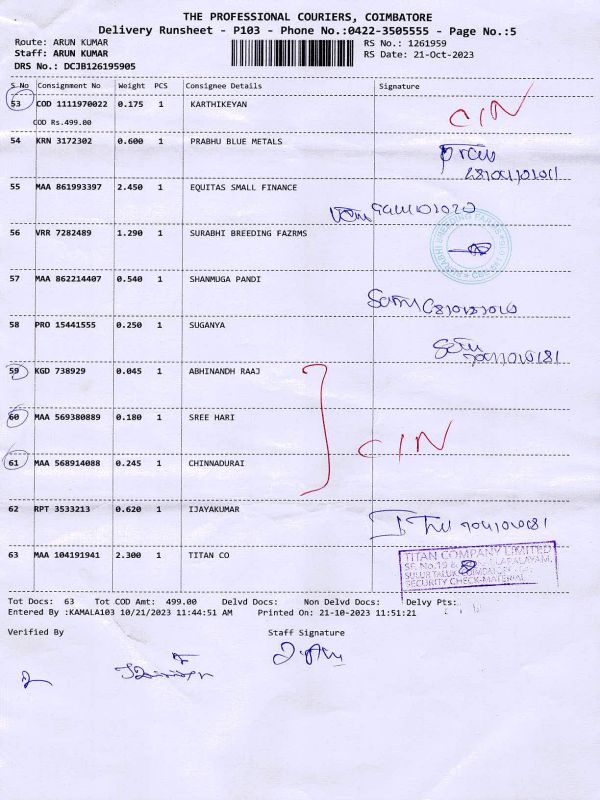 THE PROFESSIONAL COURIERS, COIMBATORE
Delivery Runsheet - P103 - Phone No.:0422-3505555 - Page No.:5
Route: ARUN KUMAR RS No.: 1261959
Staff: ARUN KUMAR RS Date: 21-Oct-2023
DRS No.: DCJB126195905
S No Consignment No Weight PCS Consignee Details Signature
53 COD 1111970022 0.175 1 KARTHIKEYAN C/N
COD Rs.499.00
54 KRN 3172302 0.600 1 PRABHU BLUE METALS
55 MAA 861993397 2.450 1 EQUITAS SMALL FINANCE
56 VRR 7282489 1.290 1 SURABHI BREEDING FAZRMS
57 MAA 862214407 0.540 1 SHANMUGA PANDI
58 PRO 15441555 0.250 1 SUGANYA
59 KGD 738929 0.045 1 ABHINANDH RAAJ
60 MAA 569380889 0.180 1 SREE HARI
C/N
61 MAA 568914088 0.245 1 CHINNADURAI
62 RPT 3533213 0.620 1 IJAYAKUMAR
63 MAA 104191941 2.300 1 TITAN CO
TITAN COMPANY LIMITED
SF. No.19 &
SULUR TALUK
SECURITY CHECK-MATERIAL
Tot Docs: 63 Tot COD Amt: 499.00 Delvd Docs: Non Delvd Docs: Delvy Pts:
Entered By :KAMALA103 10/21/2023 11:44:51 AM Printed On: 21-10-2023 11:51:21
Verified By Staff Signature